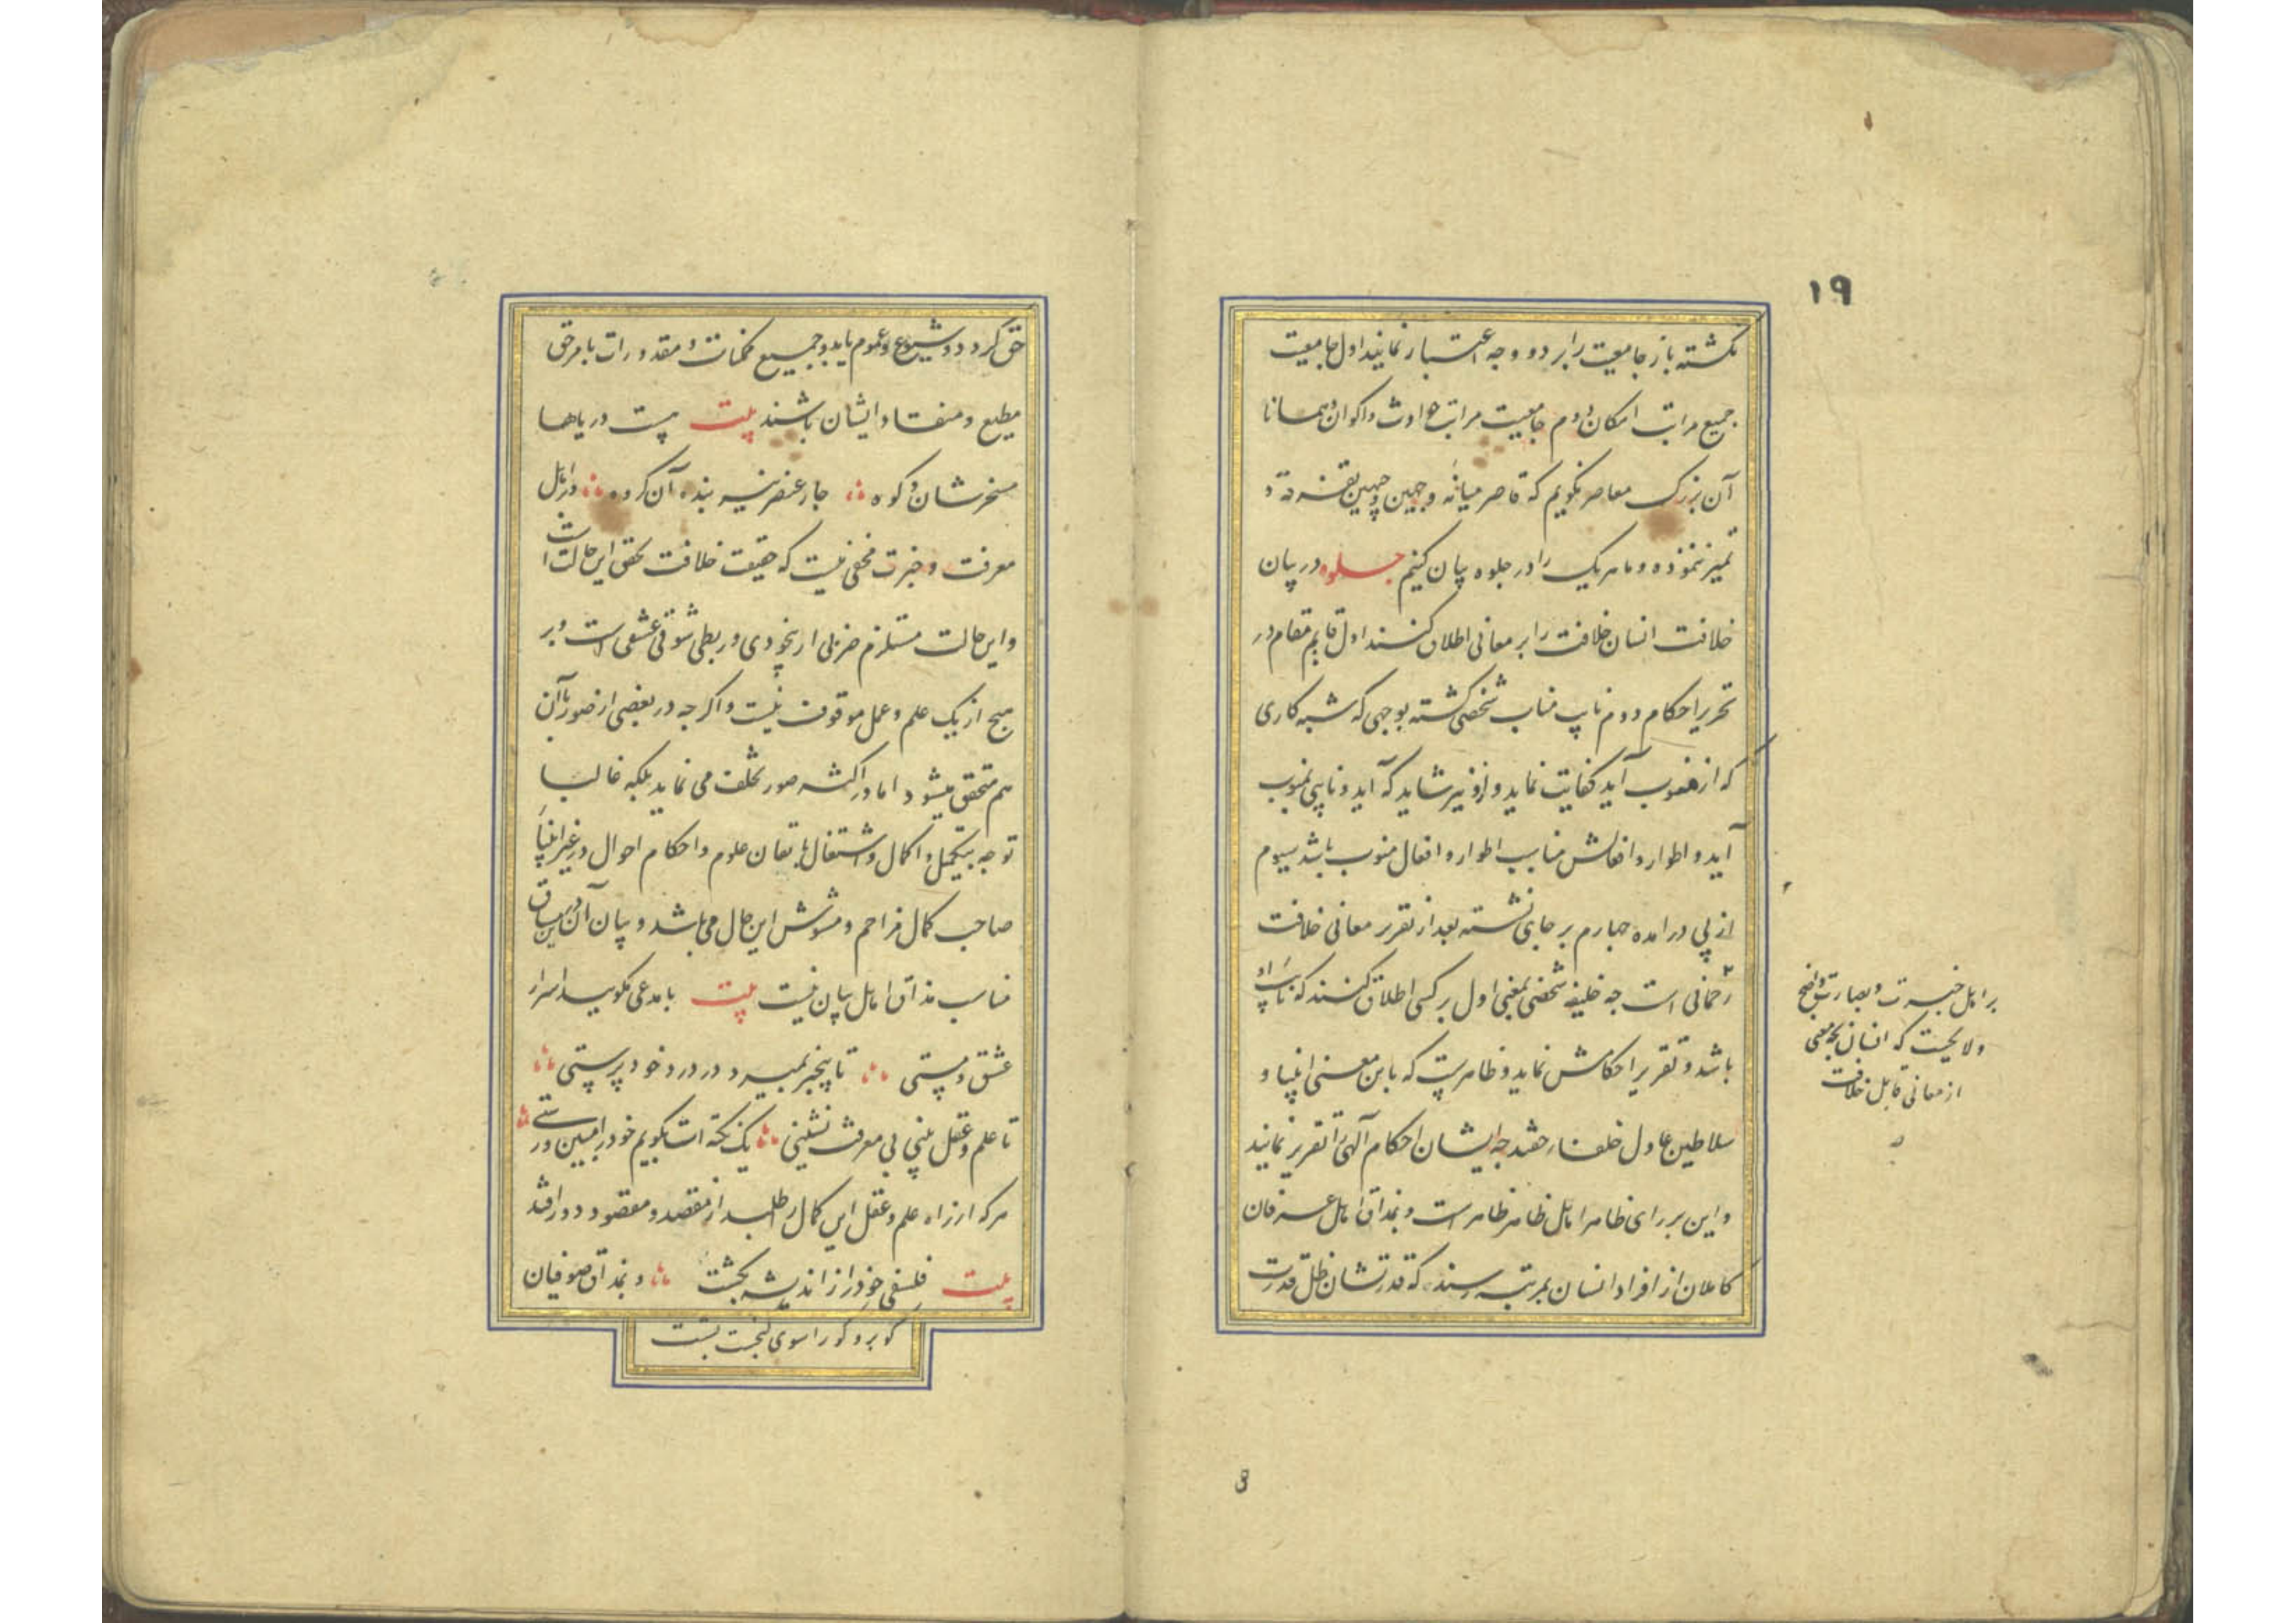 ۱۹
نکشته باز جامعیت را بر دو وجه اعتبار نمایند اول جامعیت
جمیع مراتب امکان دوم جامعیت مراتب حوادث و اکوان و همانا
آن بزرک معاصر نکویم که قاصر میانه وجهین وجهین تفرقه و
تمیز ننموذه و ما هریک را در جلوه بیان کنیم جلوه در بیان
خلافت انسان خلافت را بر معانی اطلاق کنند اول قایم مقام در
تحریر احکام دوم نایب مناب شخصی کشته بوجهی که شبه کاری
که از منوب آید کفایت نماید و ازو نیز شاید که آید و نایبی منوب
آید و اطوار و افعالش مناسب اطوار و افعال منوب باشد سیوم
از پی درامده چهارم بر جای نشسته بعد از تقریر معانی خلافت
رحمانی است چه خلیفه شخصی بمعنی اول بر کسی اطلاق کنند که نایب او
باشد و تقریر احکامش نماید و ظاهرست که باین معنی انبیا و
سلاطین عادل خلفاء حقند چه ایشان احکام آلهی را تقریر نمایند
و این بر رای ظاهر اهل ظاهر ظاهر است و بمذاق اهل عرفان
کاملان از افراد انسان بمرتبه رسند که قدرتشان ظل قدرت
بر اهل خبرت و بصارت واضح
و لایحست که انسان بچه معنی
از معانی قابل خلافت
حق کردد و شیوع و عموم یابد و جمیع ممکنات و مقدورات بامر حق
مطیع و منقاد ایشان باشند بیت هست دریاها
مسخرشان و کوه جار عنصر نیسه بنده آن کروه و بر اهل
معرفت و خبرت مخفی نیست که حقیقت خلافت تحقق این حالت است
و این حالت مستلزم ضربی از بیخودی و ربطی شوقی عشقی است و بر
هیچ از یک علم و عمل موقوف نیست و اکر چه در بعضی از صور با آن
هم متحقق میشود اما در اکثر صور تخلف می نماید بلکه غالبا
توجه بتکمیل و اکمال و اشتغال باتقان علوم و احکام احوال در غیر انبیاء
صاحب کمال مزاحم و مشوش این حال می باشد و بیان آن درین سیاق
مناسب مذاق اهل بیان نیست بیت با مدعی مکویید اسرار
عشق و مستی تا بیخبر نمیرد در درد خودپرستی
تا علم و عقل بینی بی معرفت نشینی یک نکته ات بکویم خود را مبین و رستی
هر که از راه علم و عقل این کمال را طلبد از مقصد و مقصود دور افتد
بیت فلسفی خود را از اندیشه بکشت و بمذاق صوفیان
کو برو کو را سوی کنجست پشت